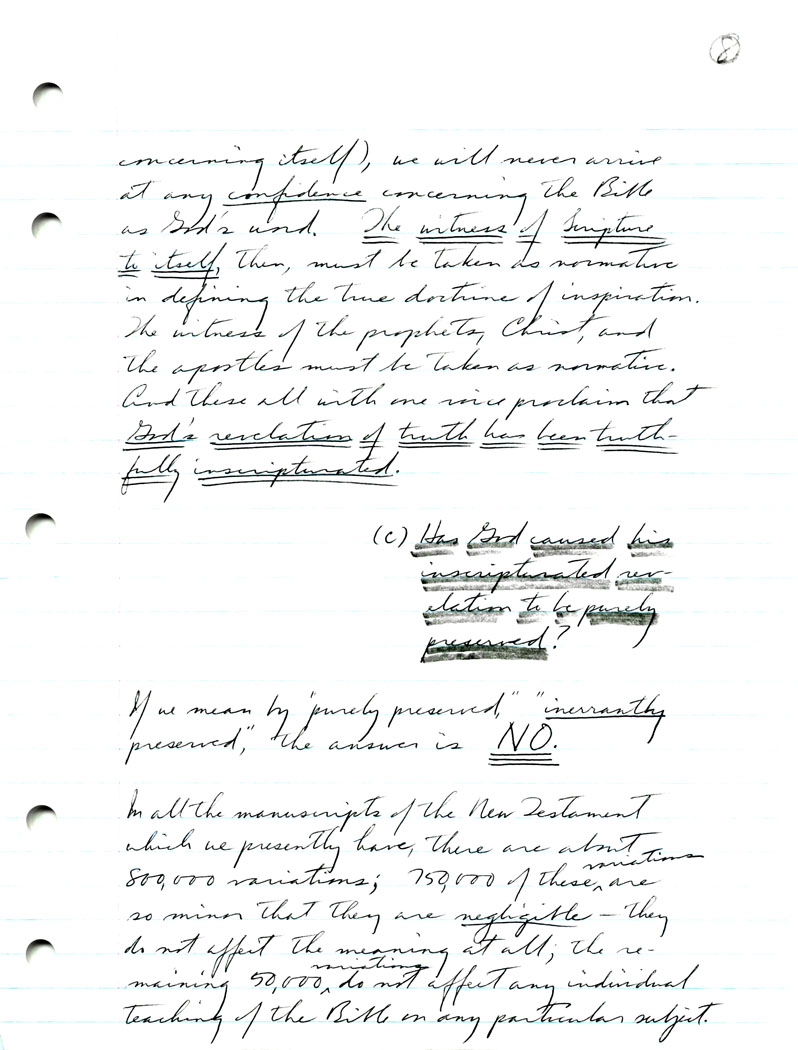 8
concerning itself), we will never arrive
at any confidence concerning the Bible
as God's word. The witness of Scripture
to itself, then, must be taken as normative
in defining the true doctrine of inspiration.
The witness of the prophets, Christ, and
the apostles must be taken as normative.
And these all with one voice proclaim that
God's revelation of truth has been truth-
fully inscripturated.
(C) Has God caused his
inscripturated rev-
elation to be purely
preserved?
If we mean by "purely preserved," "inerrantly
preserved," the answer is NO.
In all the manuscripts of the New Testament
which we presently have, there are about
800,000 variations; 750,000 of these variations are
so minor that they are negligible – they
do not affect the meaning at all; the re-
maining 50,000 variations do not affect any individual
teaching of the Bible on any particular subject.